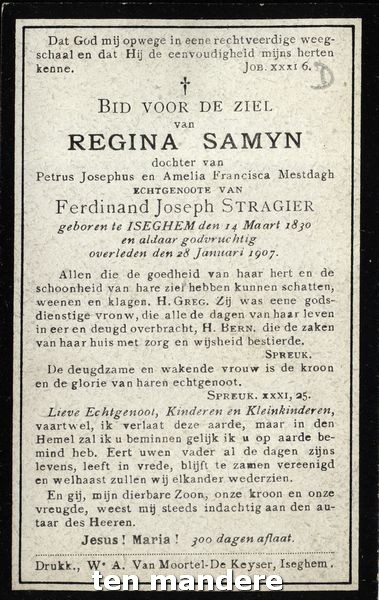 Dat God mij opwege in eene rechtveerdige weeg-
schaal en dat Hij de eenvoudigheid mijns herten
kenne. JOB. XXXI 6.
D
†
BID VOOR DE ZIEL
van
REGINA SAMYN
dochter van
Petrus Josephus en Amelia Francisca Mestdagh
ECHTGENOOTE VAN
Ferdinand Joseph STRAGIER
geboren te ISEGHEM den 14 Maart 1830
en aldaar godvruchtig
overleden den 28 Januari 1907.
Allen die de goedheid van haar hert en de
schoonheid van hare ziel hebben kunnen schatten,
weenen en klagen. H. GREG. Zij was eene gods-
dienstige vronw, die alle de dagen van haar leven
in eer en deugd overbracht, H. BERN. die de zaken
van haar huis met zorg en wijsheid bestierde.
SPREUK.
De deugdzame en wakende vrouw is de kroon
en de glorie van haren echtgenoot.
SPREUK. XXXI, 25.
Lieve Echtgenoot, Kinderen en Kleinkinderen,
vaartwel, ik verlaat deze aarde, maar in den
Hemel zal ik u beminnen gelijk ik u op aarde be
mind heb. Eert uwen vader al de dagen zijns
levens, leeft in vrede, blijft te zamen vereenigd
en welhaast zullen wij elkander wederzien.
En gij, mijn dierbare Zoon, onze kroon en onze
vreugde, weest mij steeds indachtig aan den au-
taar des Heeren.
Jesus! Maria! 300 dagen aflaat.
Drukk., We A. Van Moortel-De Keyser, Iseghem.
ten mandere